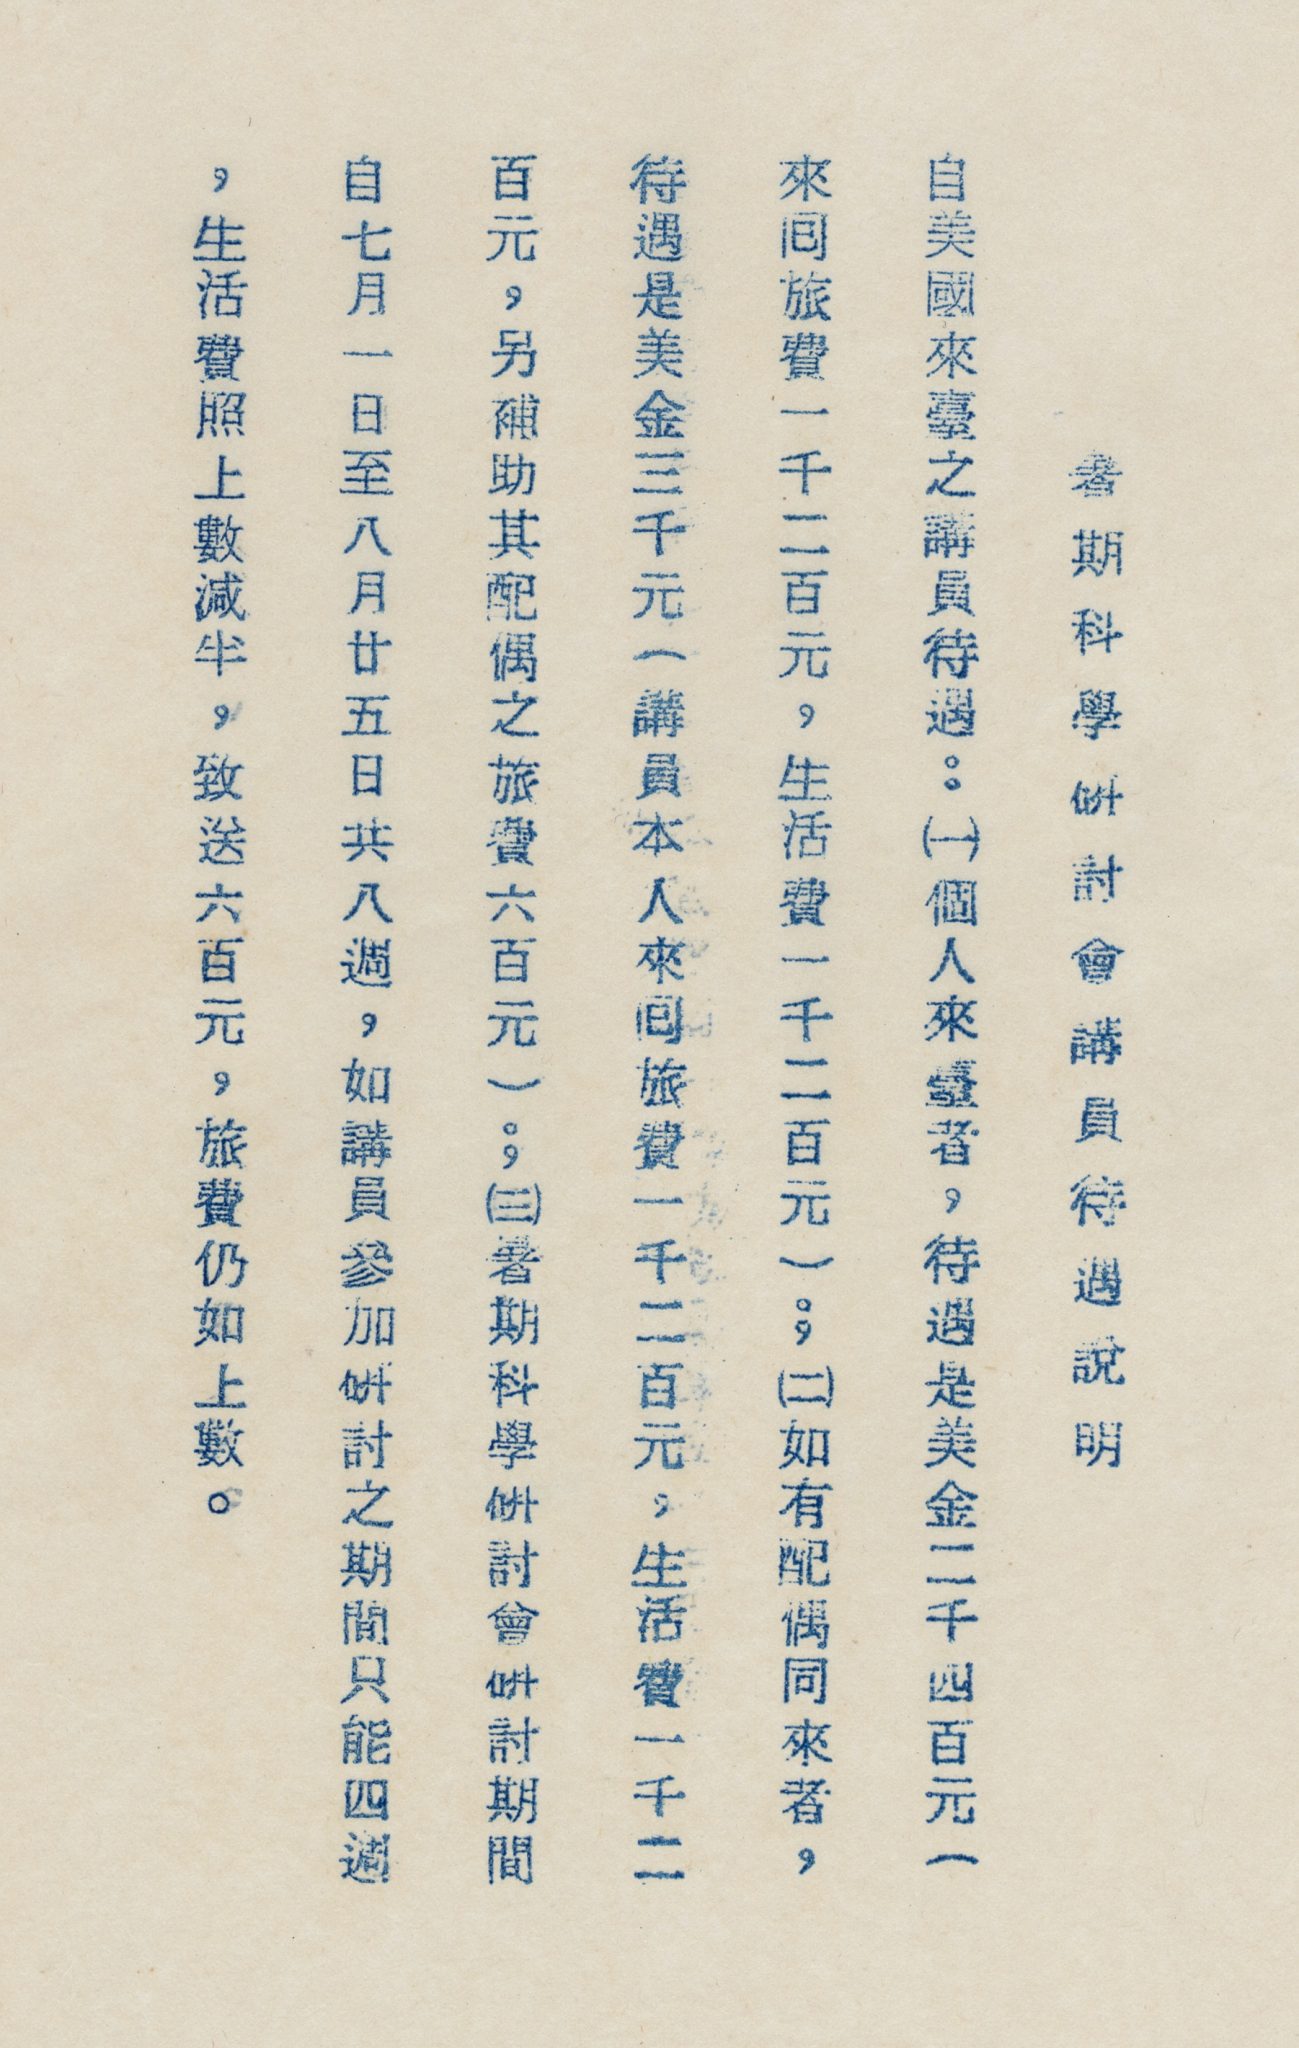 暑期科學研討會講員待遇說明
自美國來臺之講員待遇：㈠個人來臺者，待遇是美金二千四百元（
來回旅費一千二百元，生活費一千二百元）。，㈡如有配偶同來者，
待遇是美金三千元（講員本人來回旅費一千二百元，生活費一千二
百元，另補助其配偶之旅費六百元）。，㈢暑期科學研討會研討期間
自七月一日至八月廿五日共八週，如講員參加研討之期間只能四週
，生活費照上數減半，致送六百元，旅費仍如上數。